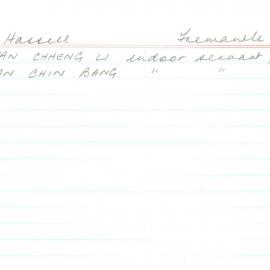 Hassell Fremantle
AN CHHENG LI indoor servant,
AN CHIN BANG " "